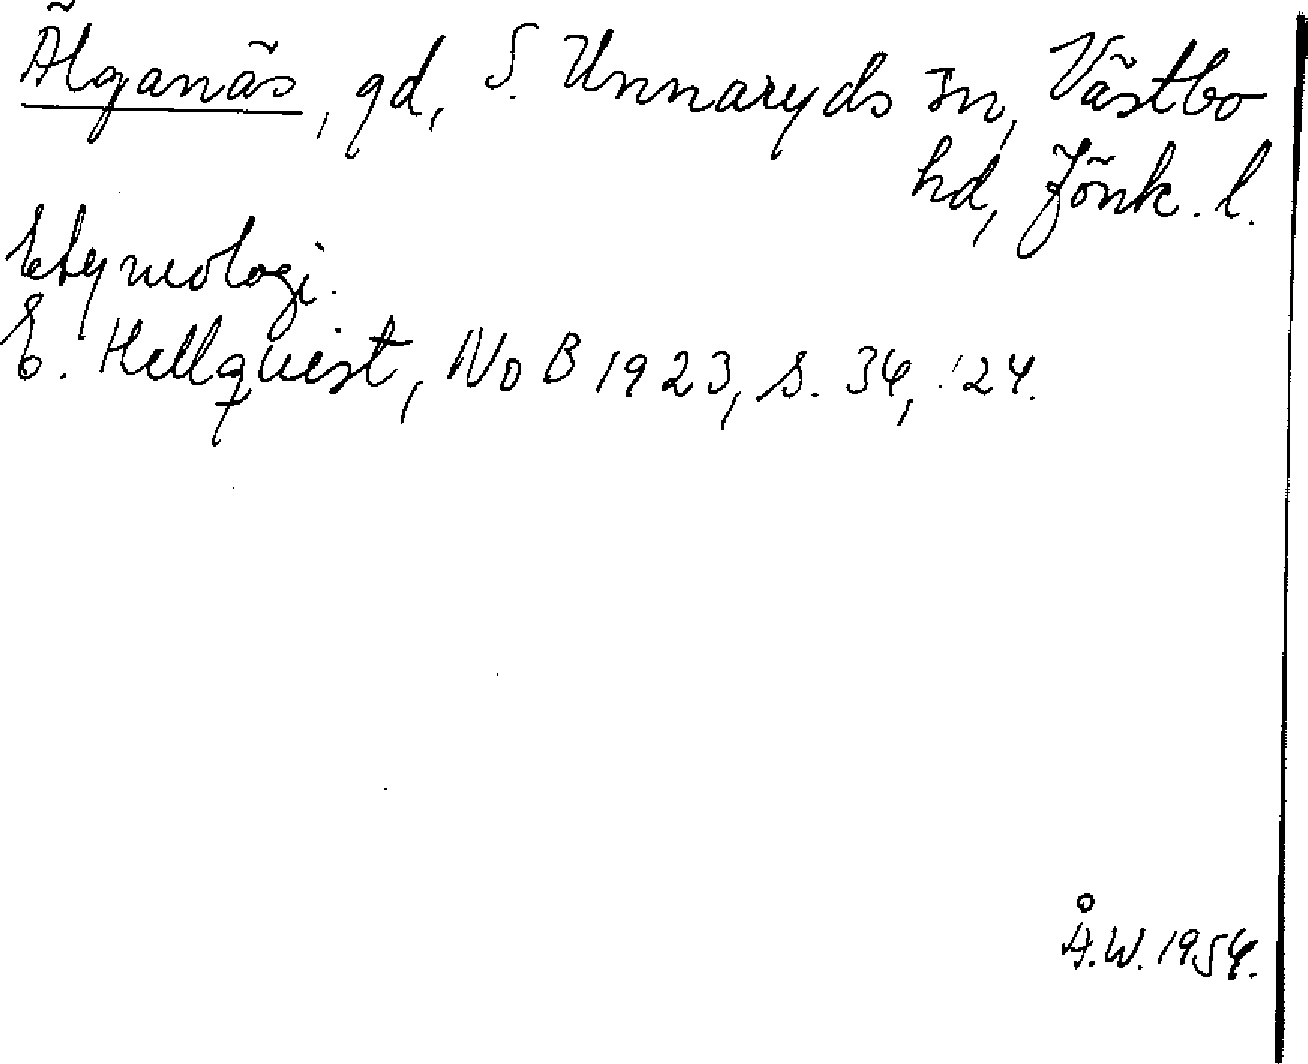 Älganäs, gd, S. Unnaryds sn, Västbo
hd, Jönk. l.
Etymologi.
E. Hellquist, NoB 1923, s. 34, 124.
Å.W. 1954.